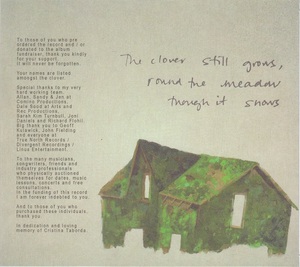 To those of you who pre
ordered the record and / or
donated to the album
fundraiser, thank you kindly
for your support.
It will never be forgotten.
Your names are listed
amongst the clover.
Special thanks to my very
hard working team.
Allan, Sandy & Jen at
Comino Productions,
Dale Good at Airs and
Rec Productions,
Sarah Kim Turnbull, Joni
Daniels and Richard Flohil.
Big thank you to Geoff
Kulawick, John Fielding
and everyone at
True North Records /
Divergent Recordings /
Linus Entertainment.
To the many musicians,
songwriters, friends and
industry professionals
who physically auctioned
themselves for dates, music
lessons, concerts and free
consultations.
In the funding of this record
I am forever indebted to you.
And to those of you who
purchased these individuals,
thank you.
In dedication and loving
memory of Cristina Taborda.
The clover still grows,
round the meadow
though it snows